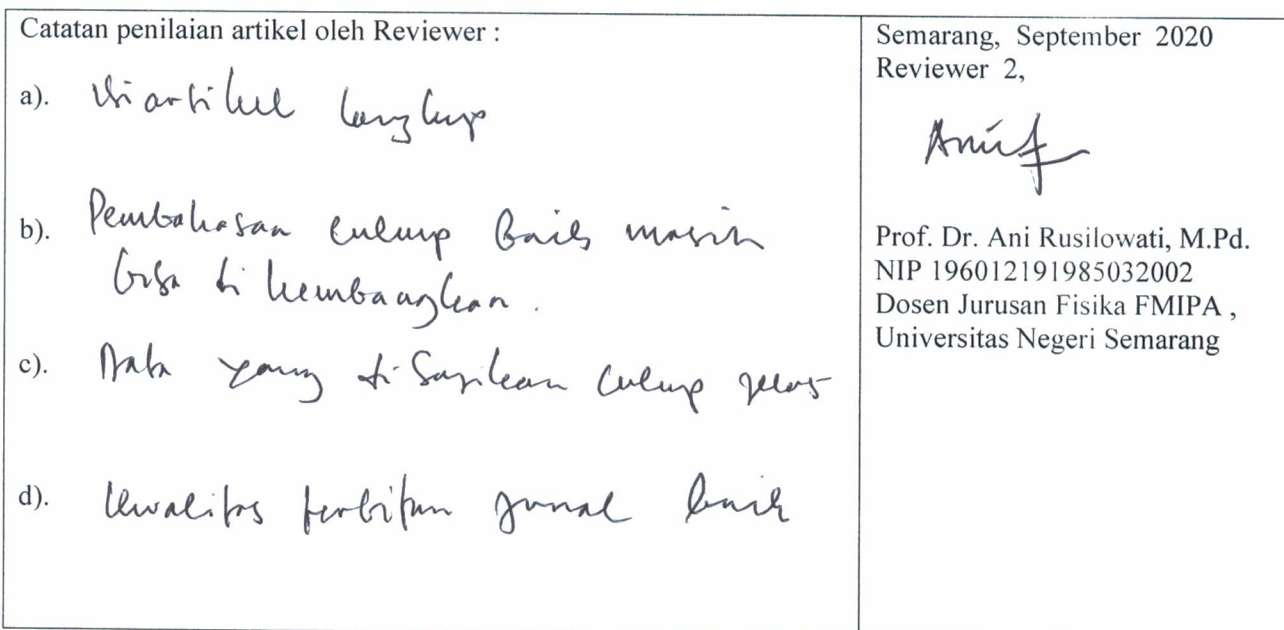 Catatan penilaian artikel oleh Reviewer :
a). Isi artikel lengkap
b). Pembahasan cukup baik masih
bisa di kembangkan.
c). Data yang di Sajikan cukup jelas
d). Kwalitas terbitan jurnal baik
Semarang, September 2020
Reviewer 2,
Prof. Dr. Ani Rusilowati, M.Pd.
NIP 196012191985032002
Dosen Jurusan Fisika FMIPA ,
Universitas Negeri Semarang